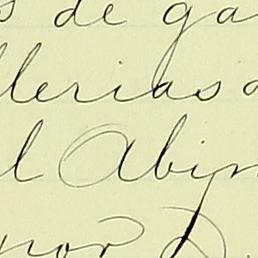 s de ga
llerias
l Abin
por D.